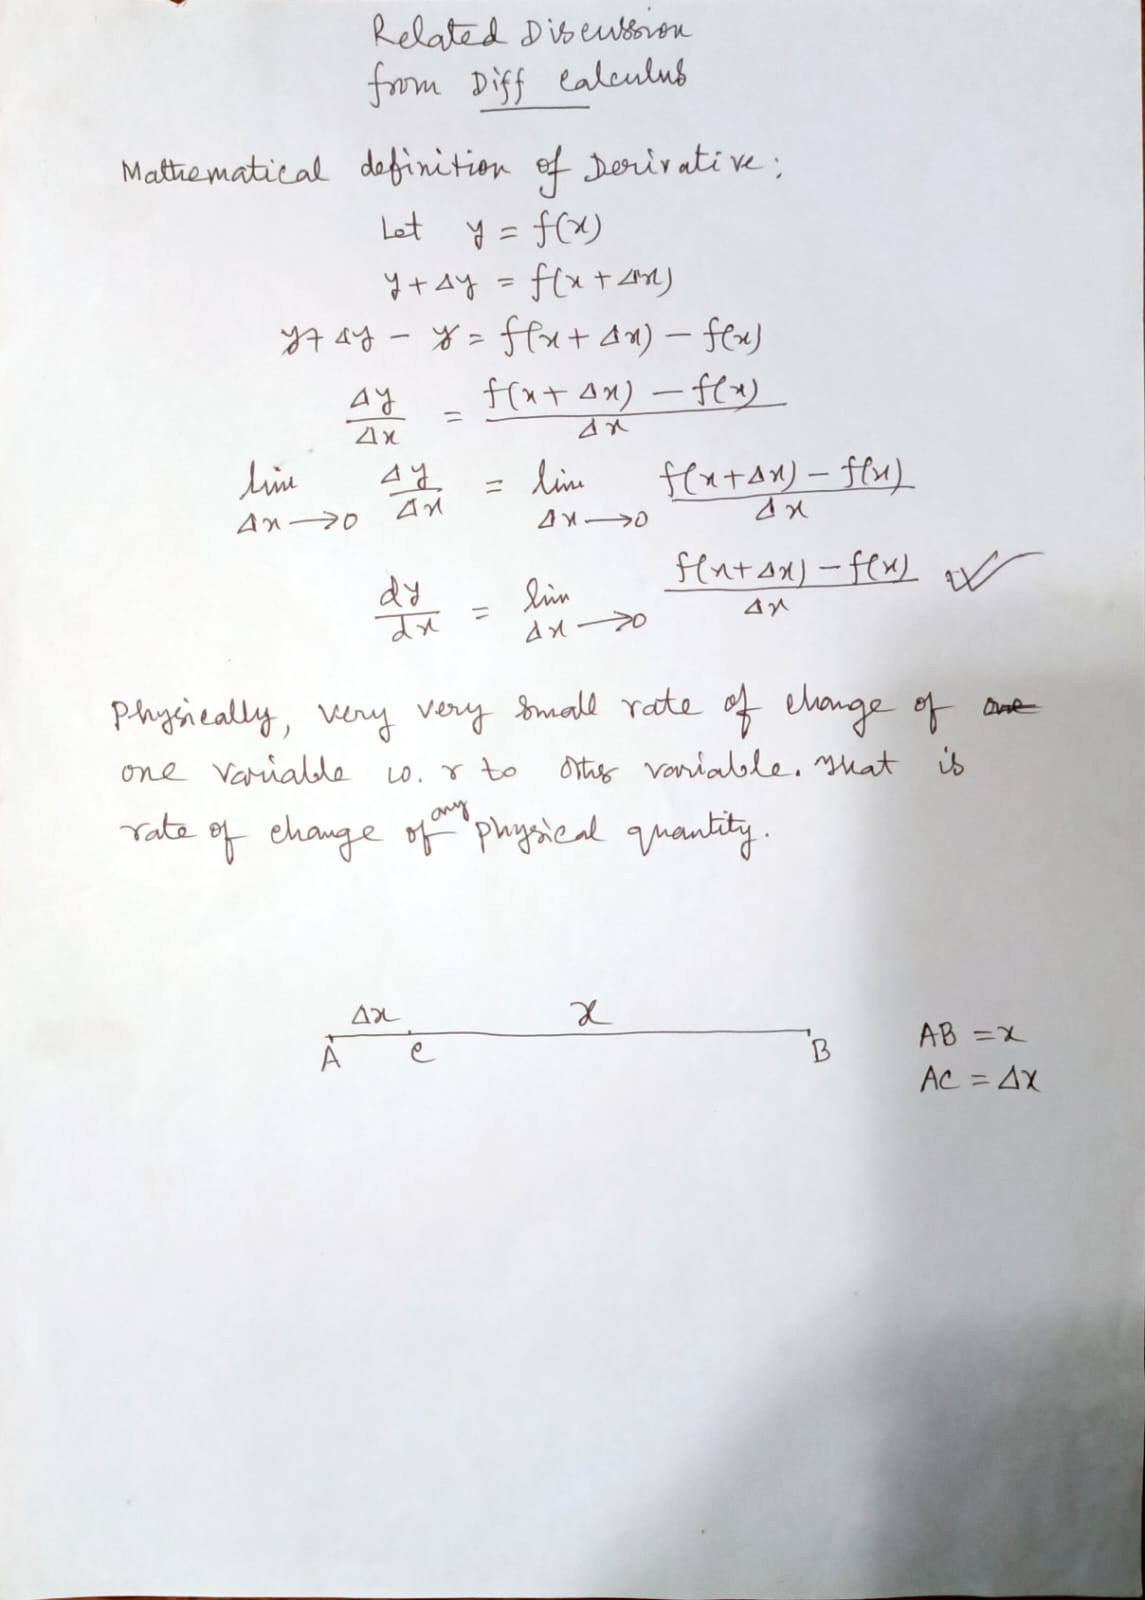 Related Discussion
from Diff Calculus
Mathematical definition of Derivative:
Let y = f(x)
y + Δy = f(x + Δx)
y + Δy - y = f(x + Δx) - f(x)
Δy/Δx = (f(x + Δx) - f(x))/Δx
lim Δx→0 Δy/Δx = lim Δx→0 (f(x+Δx) - f(x))/Δx
dy/dx = lim Δx→0 (f(x+Δx) - f(x))/Δx
Physically, very very small rate of change of one
one variable w. r to other variable. That is
rate of change of any physical quantity.
Δx x
A C B
AB = x
AC = Δx